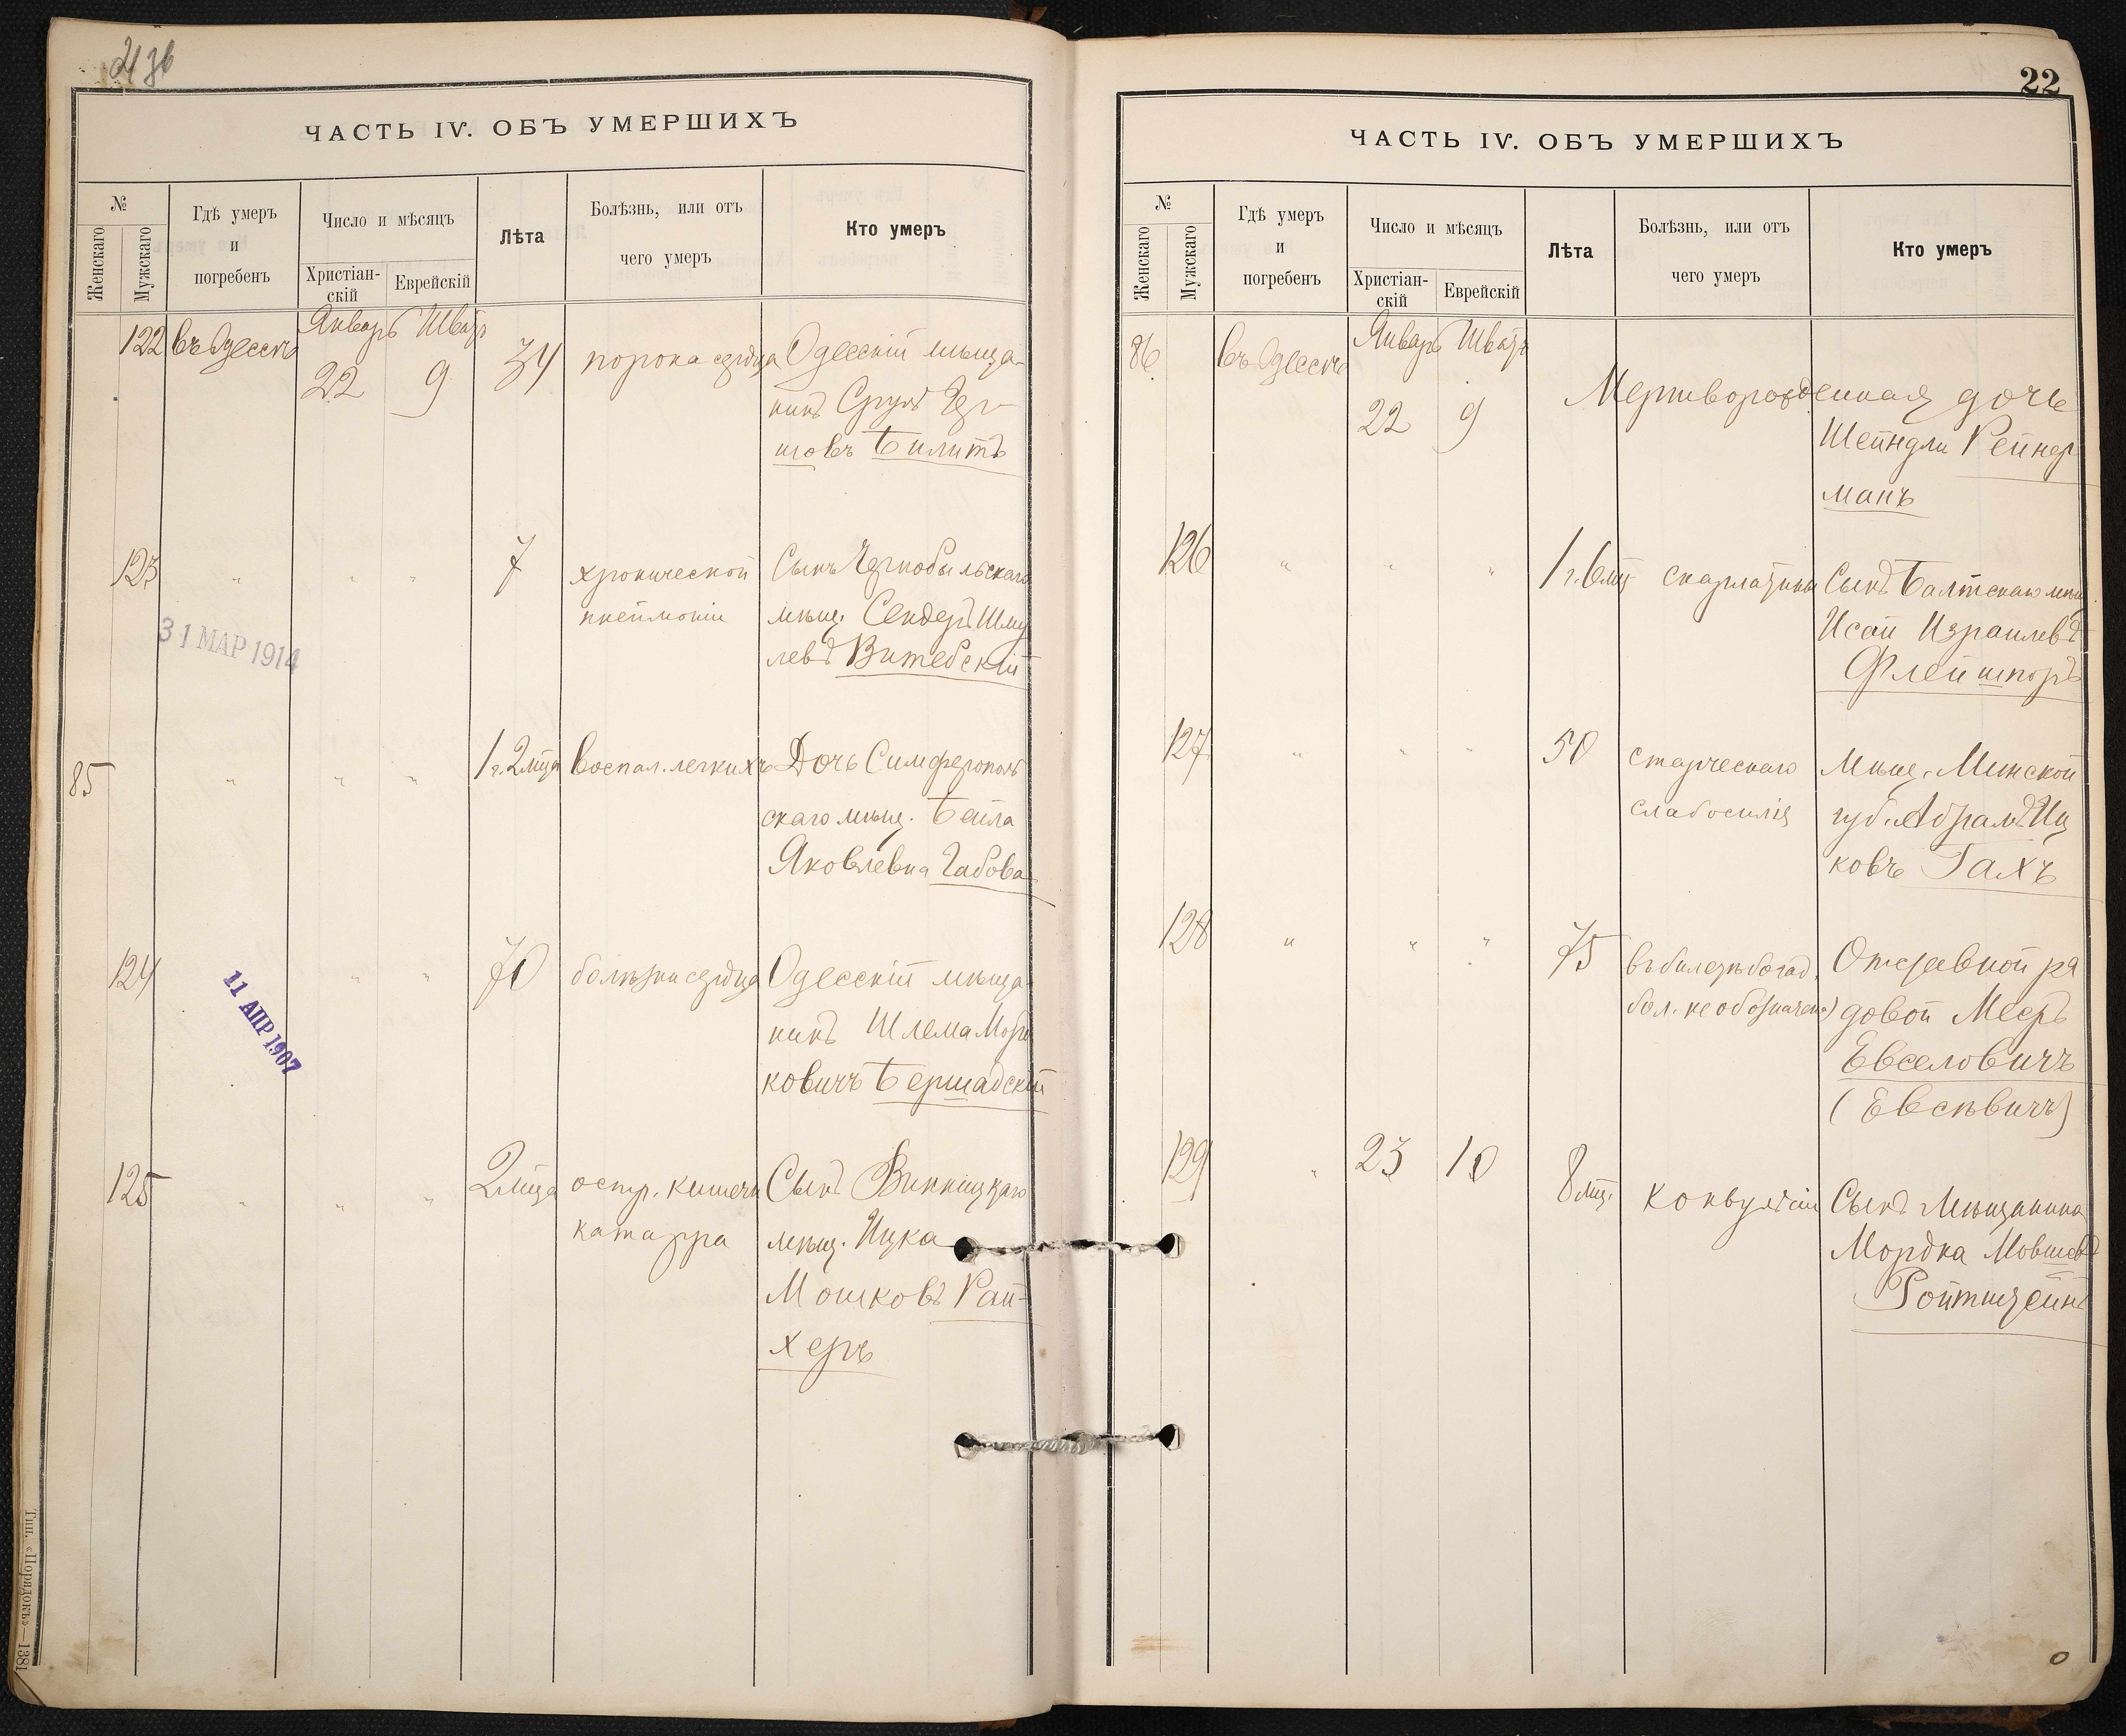 ЧАСТЬ IV. ОБЪ УМЕРШИХЪ
№
Женскаго
Мужскаго
Гдѣ умеръ
и
погребенъ
Число и мѣсяцъ
Христіан-
скій
Еврейскій
Лѣта
Болѣзнь, или отъ
чего умеръ
Кто умеръ
122 въ Одессѣ Январь Шватъ
22 9 34 порока сердца Одесскій мѣща-
нинъ Сруль Гер-
шовъ Билитъ
123 " " " 7 хронической Сынъ Чернобыльскаго
пнеймоніи мѣщ. Сендеръ Шму
левъ Витебскій
31 МАР 1914
85 " " " 1 г. 2 мца воспал. легкихъ Дочь Симферополь
скаго мѣщ. Бейла
Яковлевна Габова
124 " " 70 болѣзни сердца Одесскій мѣща-
нинъ Шлема Морд
ковичъ Бершадскій
11 АПР 1907
125 " " " 2 мца остр. кишечн Сынъ Винницкаго
катарра мѣщ. Ицка
Мошковъ Рай-
херъ
Тип. «Порядокъ»—1381
22
ЧАСТЬ IV. ОБЪ УМЕРШИХЪ
№
Женскаго
Мужскаго
Гдѣ умеръ
и
погребенъ
Число и мѣсяцъ
Христіан-
скій
Еврейскій
Лѣта
Болѣзнь, или отъ
чего умеръ
Кто умеръ
86 въ Одессѣ Январь Шватъ
22 9 Мертворожденная дочь
Шейндли Рейнер
манъ
126 " " " 1 г. 6 мц скарлатины Сынъ Балтскаго мѣщ.
Исай Израилевъ
Флейшпоръ
127 " " " 50 старческаго Мѣщ. Минской
слабосилія губ. Абрамъ Иц
ковъ Гахъ
128 " " " 75 въ билетѣ богад. Отставной ря
бол. не обозначено) довой Мееръ
Евселовичъ
(Евсѣвичъ)
129 " 23 10 8 мц. конвульсіи Сынъ Мѣщанина
Мордка Мовшевъ
Ройтштейнъ